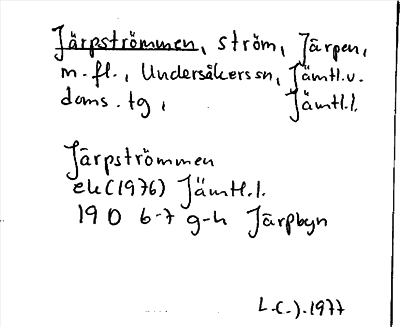 Järpströmmen, ström, Järpen,
m.fl., Undersåkers sn, Jämtl.v.
doms.tg, Jämtl.l.
Järpströmmen
ek (1976) Jämtl.l.
19 D 6-7 g-h Järpbyn
L.C.J. 1977